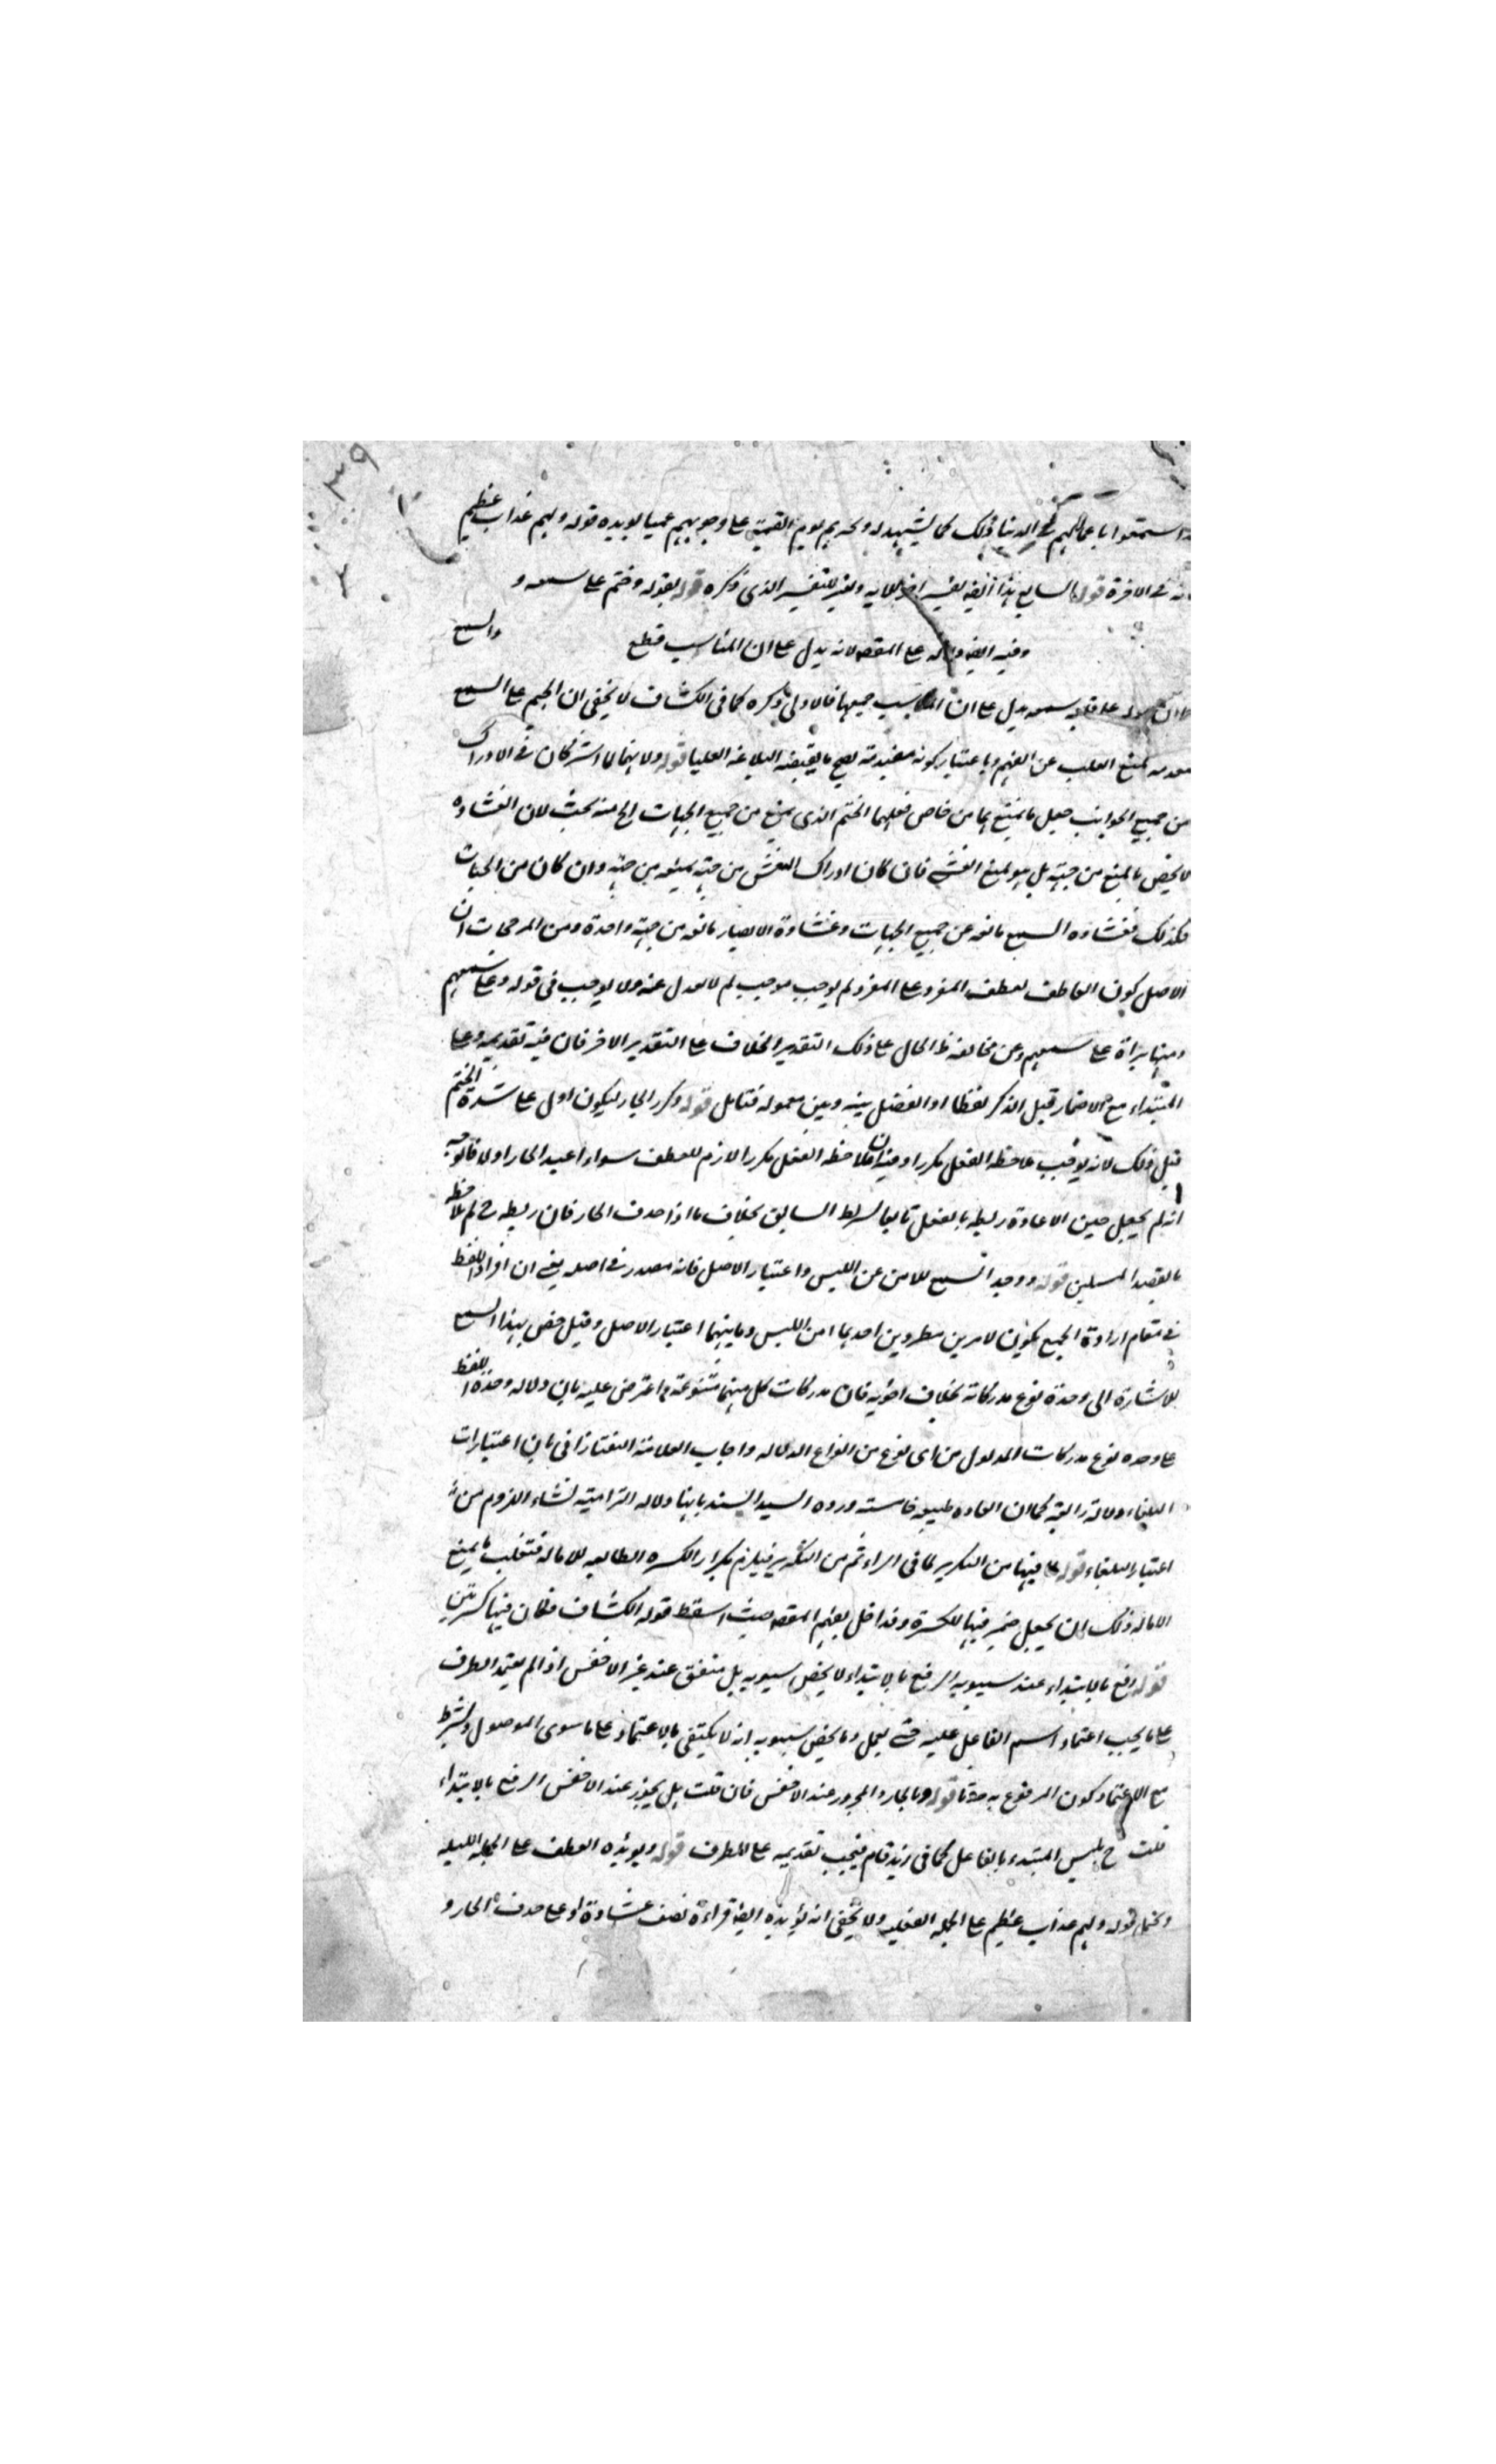 ٣٩
استمتعوا باعمالهم في الدنيا وذلك كما يشهد له وتحريم يوم القيمة على وجوههم عميا يؤيده قوله ولهم عذاب عظيم
في الاخرة قوله السابع هذا ايضا تفسير اخر للاية ولغير التفسير الذي ذكره قوله لقوله وختم على سمعه و
وفيه ايضا على المقصد لانه يدل على ان المناسب قطع والسمع
على قلبه وسمعه يدل على ان المناسب جميعها فالاولى ذكره كما في الكشاف لا يخفى ان الختم على السمع
يمنع القلب عن الفهم وباعتبار كونه البلاغة العليا قوله ولانهما لما اشتركان في الادراك
من جميع الجوانب جعل ما يمنع بما من خاص فعلهما الختم الذي يمنع من جميع الجهات الخ فيه بحث لان الغشاوة
لا يخص بالمنع من جهة بل هو لمنع الغشي فان كان ادراك المغشى من جهة يمنعه من جهة وان كان من الجهات
فكذلك فغشاوة السمع مانعة عن جميع الجهات وغشاوة الابصار مانعة من جهة واحدة ومن المرجحات ان
الاصل كون العاطف لعطف المفرد على المفرد لم يوجب موجب لم لا يعدل عنه ولا يوجب في قوله وعلى سمعهم
ومنها على سمعهم وعن مخالفة ظ الحال على ذلك التقدير الخلاف على التقدير الاخر فان فيه تقديمه وعلى
المبتداء مع الاضمار قبل الذكر لفظا او الفصل بينه وبين معموله فتامل قوله وكرر الجار ليكون ادل على شدة الختم
قيل ذلك لانه يوجب ملاحظة الفعل مكررا وفيه ان ملاحظة الفعل مكررا لازم للعطف سواء اعيد الجار اولا فالوجه
انه لم يجعل حين الاعادة ربطه بالفعل تابعا لربط السابق بخلاف ما اذا حذف الجار فان ربطه ح لم ملاحظة
بالقصد المسلمين قوله ووحد السمع للامن عن اللبس واعتبار الاصل فانه مصدر في اصله يعني ان افراد اللفظ
في مقام ارادة الجمع يكون لامرين مطردين احدهما امن اللبس وثانيهما اعتبار الاصل وقيل خص بهذا السمع
للاشارة الى وحدة نوع مدركاته بخلاف اخويه فان مدركات كل منهما متنوعة واعترض عليه بان دلالة وحدة اللفظ
على وحدة نوع مدركات المدلول من اي نوع من انواع الدلالة واجاب العلامة التفتازاني بان اعتبارات
البلغاء دلالة رابعة كما ان العادة طبيعة خامسة ورده السيد السند بانها دلالة التزامية نشاء اللزوم من
اعتبار البلغاء قوله لما فيها من التكرير لما في الراء ثم من التكرير فيلزم تكرار الكسرة الطالبة للامالة فتغلب ما يمنع
الامالة وذلك ان يجعل ضمير فيها للكسرة وقد اخل بفهم المقصد حيث اسقط قوله الكشاف فكان فيها كسرتين
قوله رفع بالابتداء عند سيبويه الرفع بالابتداء لا يخص سيبويه بل متفق عند غير الاخفش اذا لم يعتمد الظرف
على ما يجب اعتماد اسم الفاعل عليه حتى يعمل وما يخص سيبويه انه لا يكتفي بالاعتماد على ما سوى الموصول ويشترط
مع الاعتماد كون المرفوع به حدثا قوله وبالجار والمجرور عند الاخفش فان قلت بل يجوز عند الاخفش الرفع بالابتداء
قلت ح يلتبس المبتداء بالفاعل كما في زيد قام فيجب تقديمه على الظرف قوله ويؤيده العطف على الجملة
قوله ولهم عذاب عظيم على الجملة الفعلية ولا يخفى انه يؤيده ايضا قراءة نصب غشاوة او على حذف الجار و